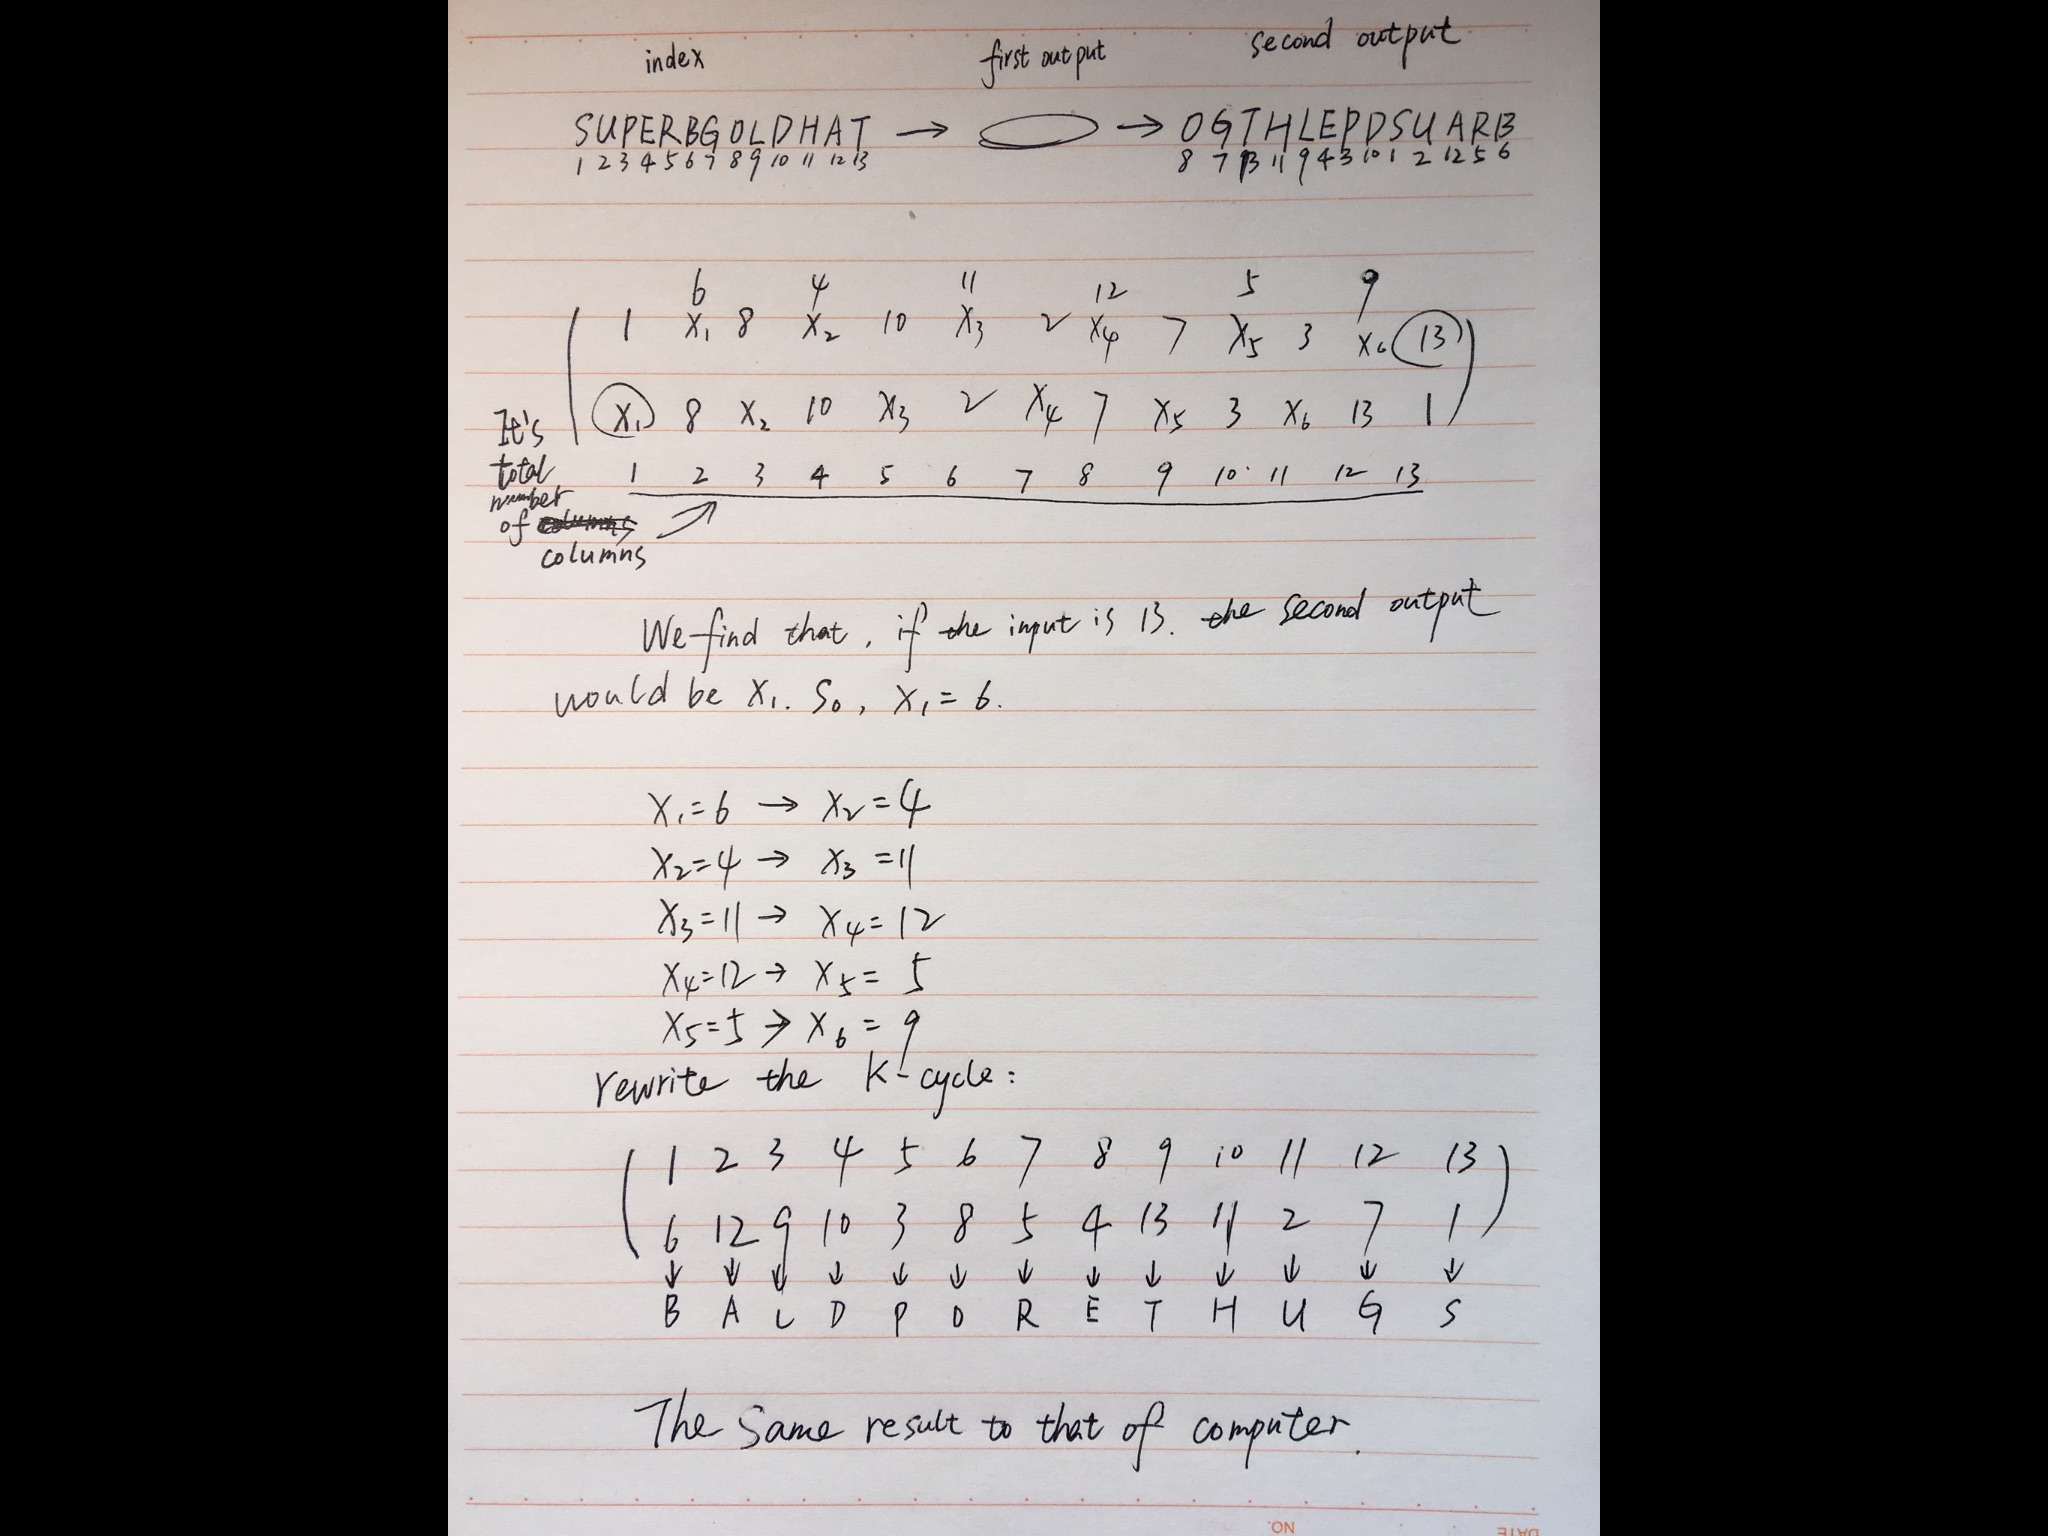 index first output second output
SUPERBGOLDHAT → → OGTHLEPDSUARB
1 2 3 4 5 6 7 8 9 10 11 12 13 8 7 13 11 9 4 3 10 1 2 12 5 6
6 4 11 12 5 9
1 X₁ 8 X₂ 10 X₃ 2 X₄ 7 X₅ 3 X₆ 13
X₁ 8 X₂ 10 X₃ 2 X₄ 7 X₅ 3 X₆ 13 1
It's total number of columns
1 2 3 4 5 6 7 8 9 10 11 12 13
We find that, if the input is 13. the second output
would be X₁. So, X₁=6.
X₁=6 → X₂=4
X₂=4 → X₃=11
X₃=11 → X₄=12
X₄=12 → X₅=5
X₅=5 → X₆=9
rewrite the K-cycle:
1 2 3 4 5 6 7 8 9 10 11 12 13
6 12 9 10 3 8 5 4 13 11 2 7 1
↓ ↓ ↓ ↓ ↓ ↓ ↓ ↓ ↓ ↓ ↓ ↓ ↓
B A L D P O R E T H U G S
The same result to that of computer.
NO. DATE